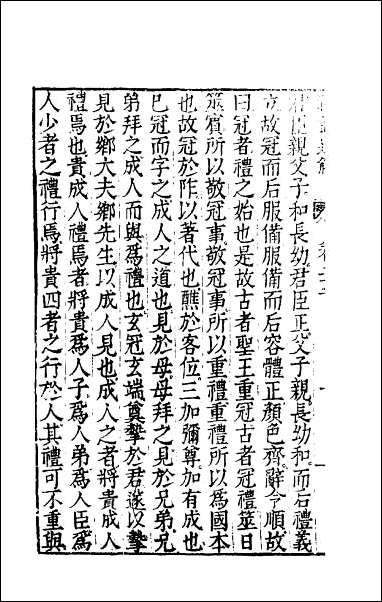 君臣親父子和長幼君臣正父子親長幼和而后禮義
立故冠而后服備服備而后容體正顏色齊辭令順故
曰冠者禮之始也是故古者聖王重冠古者冠禮筮日
筮賓所以敬冠事敬冠事所以重禮重禮所以爲國本
也故冠於阼以著代也醮於客位三加彌尊加有成也
已冠而字之成人之道也見於母母拜之見於兄弟兄
弟拜之成人而與爲禮也玄冠玄端奠摯於君遂以摯
見於鄉大夫鄉先生以成人見也成人之者將責成人
禮焉也責成人禮焉者將責爲人子爲人弟爲人臣爲
人少者之禮行焉將責四者之行於人其禮可不重與